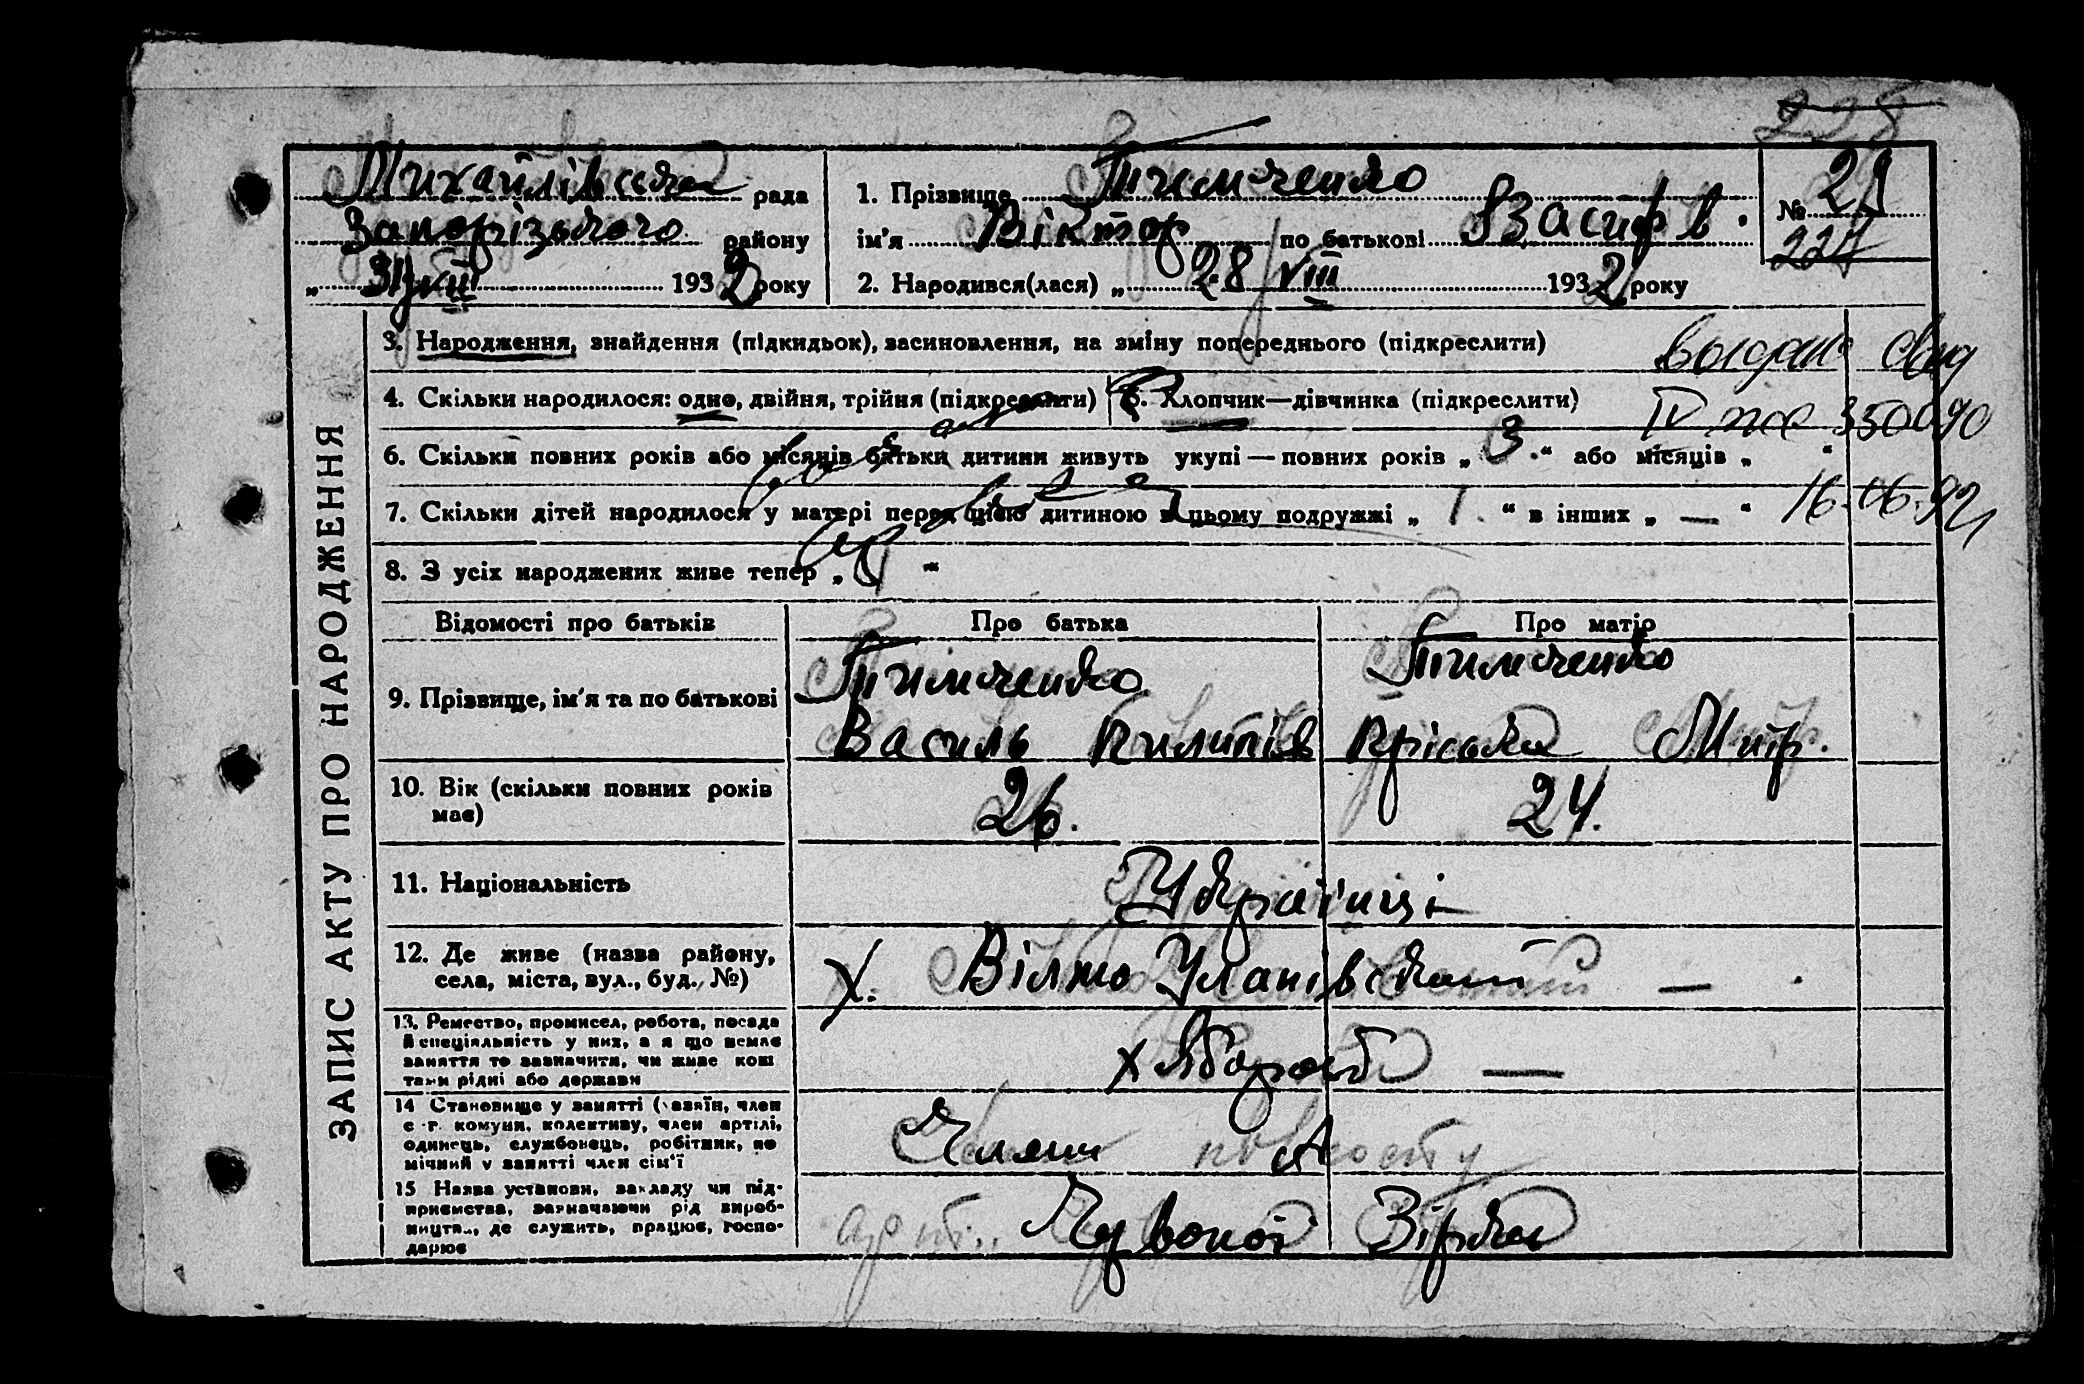 228
Михайлівська рада
Запорізького району
„ 31/VIII 1932 року
1. Прізвище Тимченко
ім’я Віктор по батькові Васил в.
2. Народився(лася) „ 28/VIII 1932 року
№ 29
227
ЗАПИС АКТУ ПРО НАРОДЖЕННЯ
3. Народження, знайдення (підкидьок), засиновлення, на зміну попереднього (підкреслити)
4. Скільки народилося: одно, двійня, трійня (підкреслити)
5. Хлопчик—дівчинка (підкреслити)
6. Скільки повних років або місяців батьки дитини живуть укупі — повних років „ 3 .“ або місяців „ “
7. Скільки дітей народилося у матері перед цією дитиною в цьому подружжі „ 1. “ в інших „ — “
8. З усіх народжених живе тепер „ “
IV 350090
16.06.92
Відомості про батьків Про батька Про матір
9. Прізвище, ім’я та по батькові
Тимченко
Василь Пилипів
Тимченко
Пріська Митр.
10. Вік (скільки повних років
має)
26. 24.
11. Національність
Українці
12. Де живе (назва району,
села, міста, вул., буд., №)
х. Вілмо Уланівський — .
13. Ремество, промисел, робота, посада
й спеціяльність у них, а я що немає
заняття то зазначити, чи живе кош
тами рідні або держави
хлібороб —
14 Становище у занятті (хазяїн, член
с-г. комуни, колективу, член артілі,
одинець, службовець, робітник, по
мічний у занятті член сім’ї
Члени
15 Назва установи, закладу чи під-
приємства, зазначаючи рід вироб-
ництв., де служить, працює, госпо-
дарює
арт.. Червоної Зірки